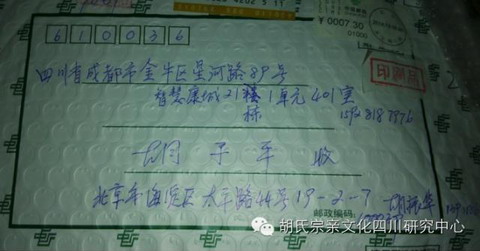 610036
¥0007.30
印刷品
四川省成都市金牛区星河路89号
智慧康城21栋1单元401室
胡子军 收
北京市海淀区太平路44号19-2-7 胡振华
邮政编码:
胡氏宗亲文化四川研究中心